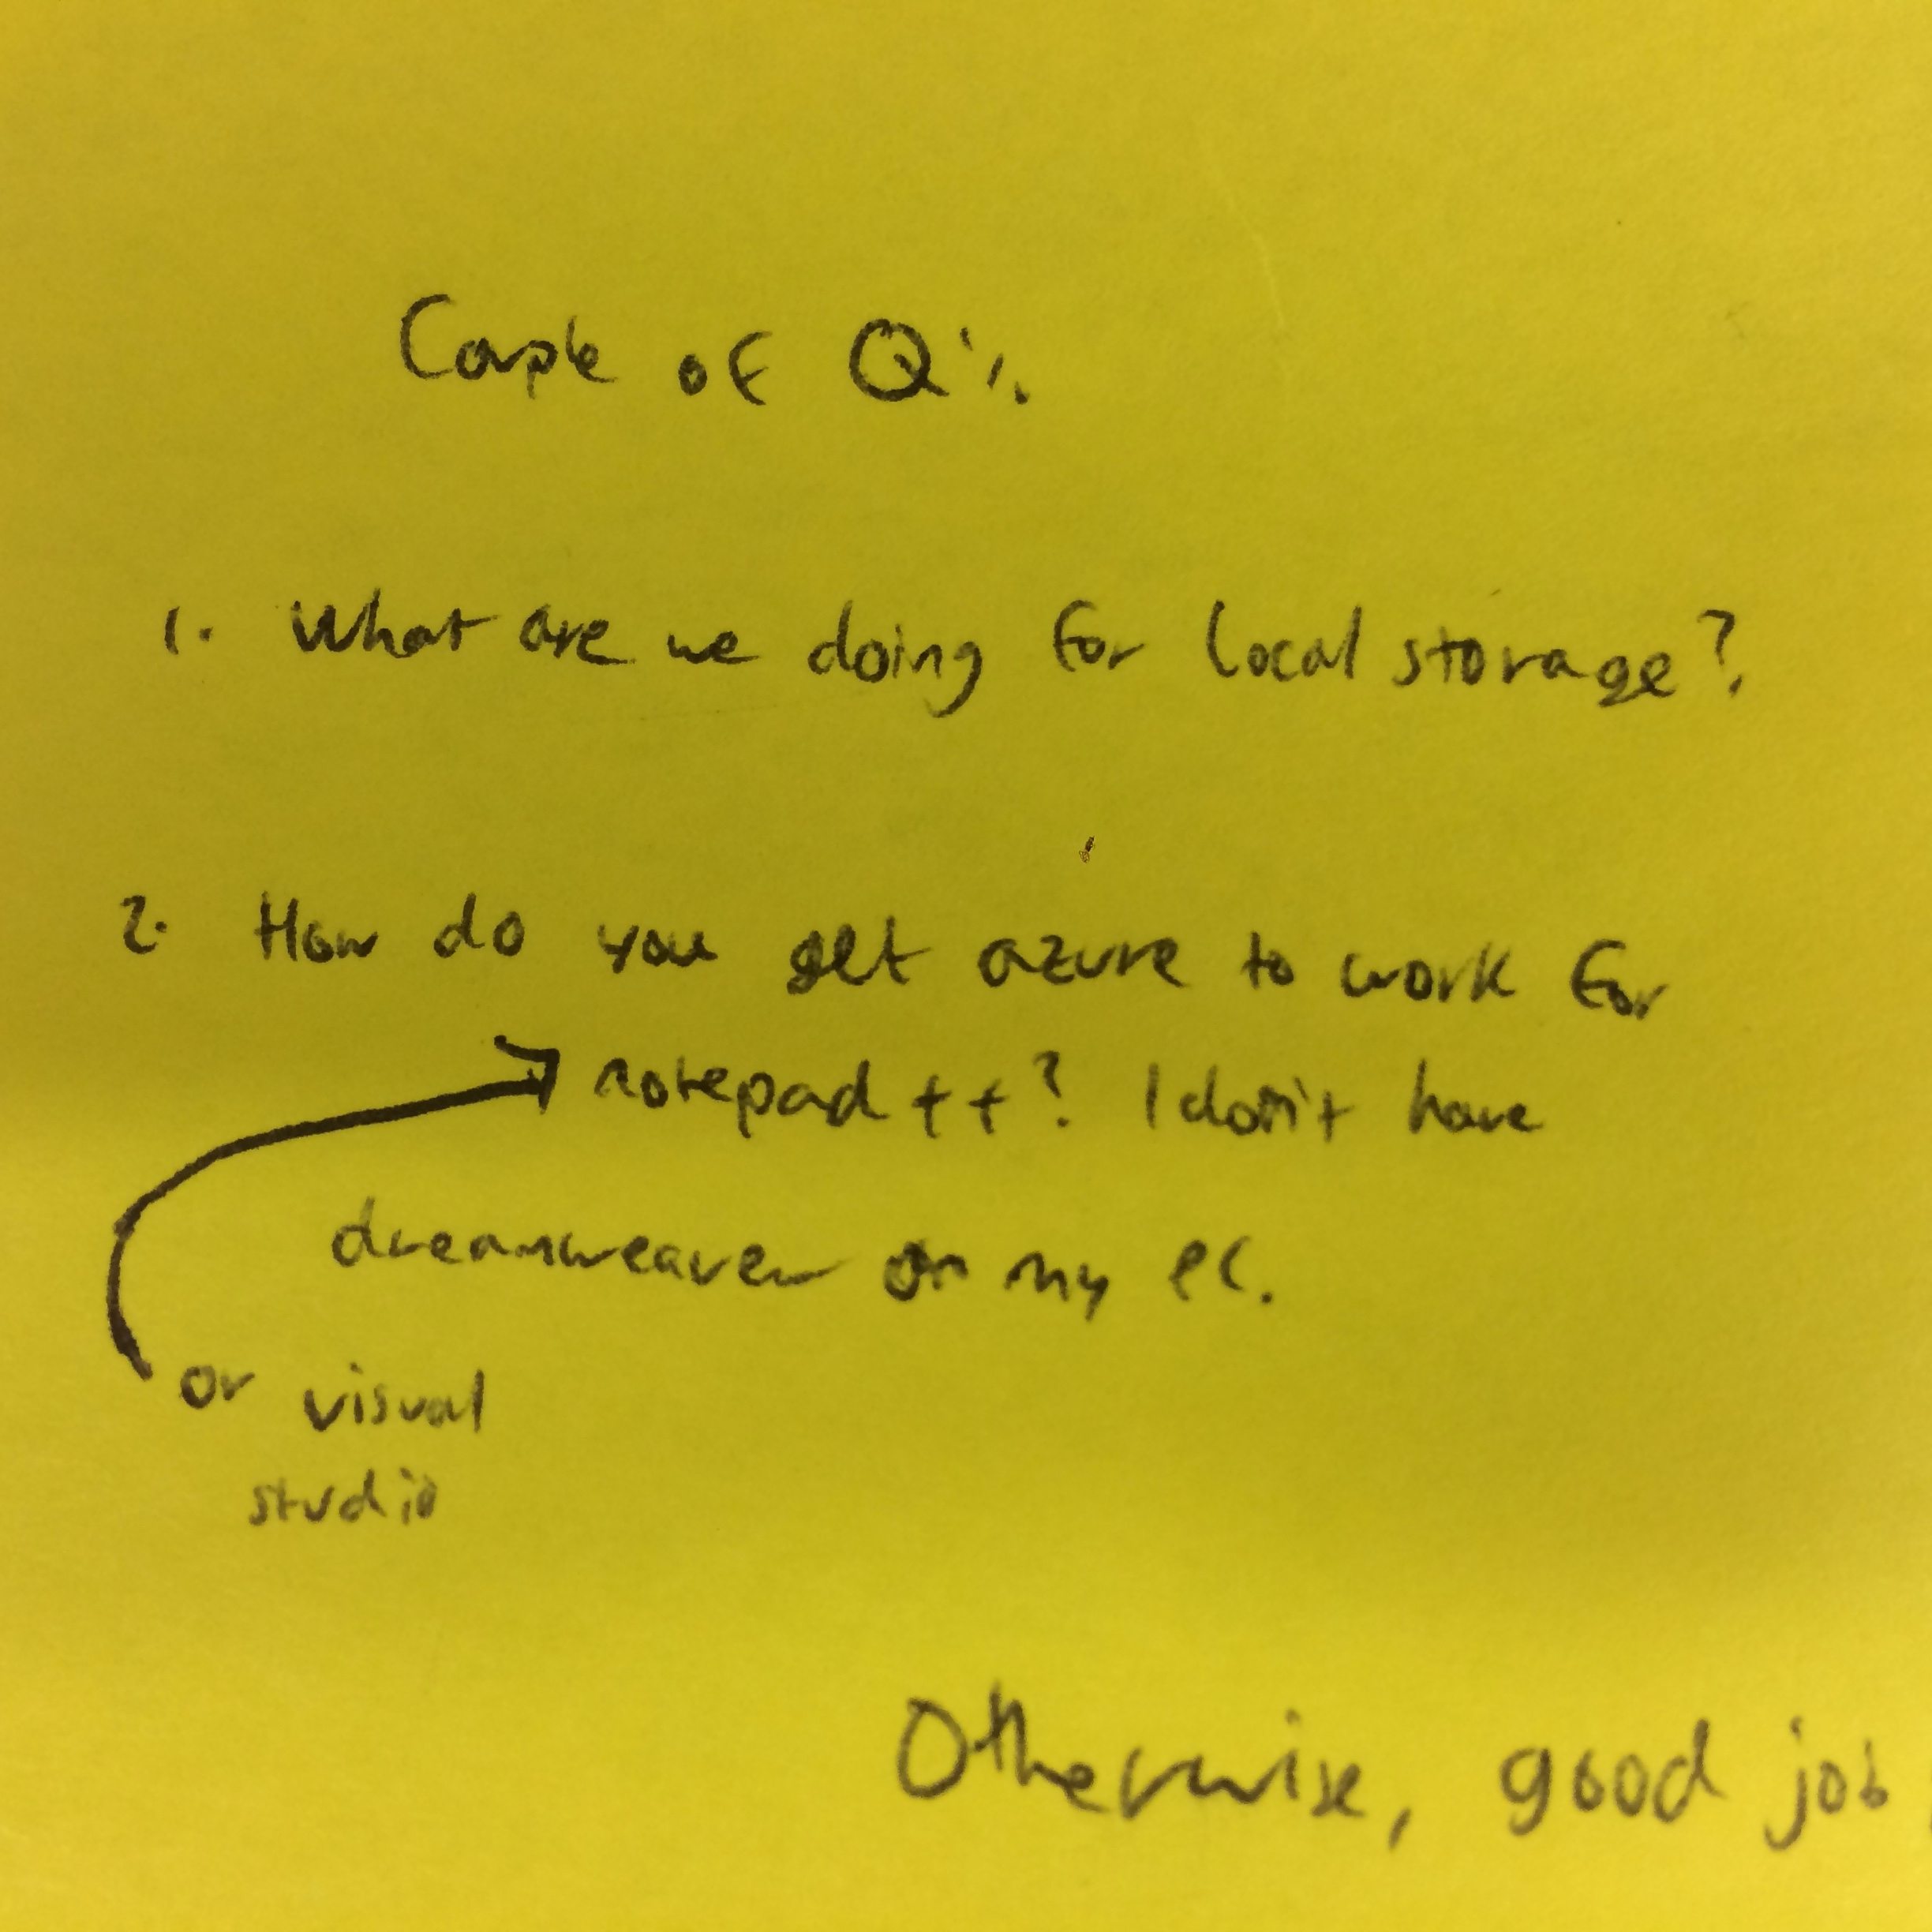 Couple of Q's.
1. What are we doing for local storage?
2. How do you get azure to work for
notepad ++? I don't have
dreamweaver on my PC.
or visual
studio
Otherwise, good job